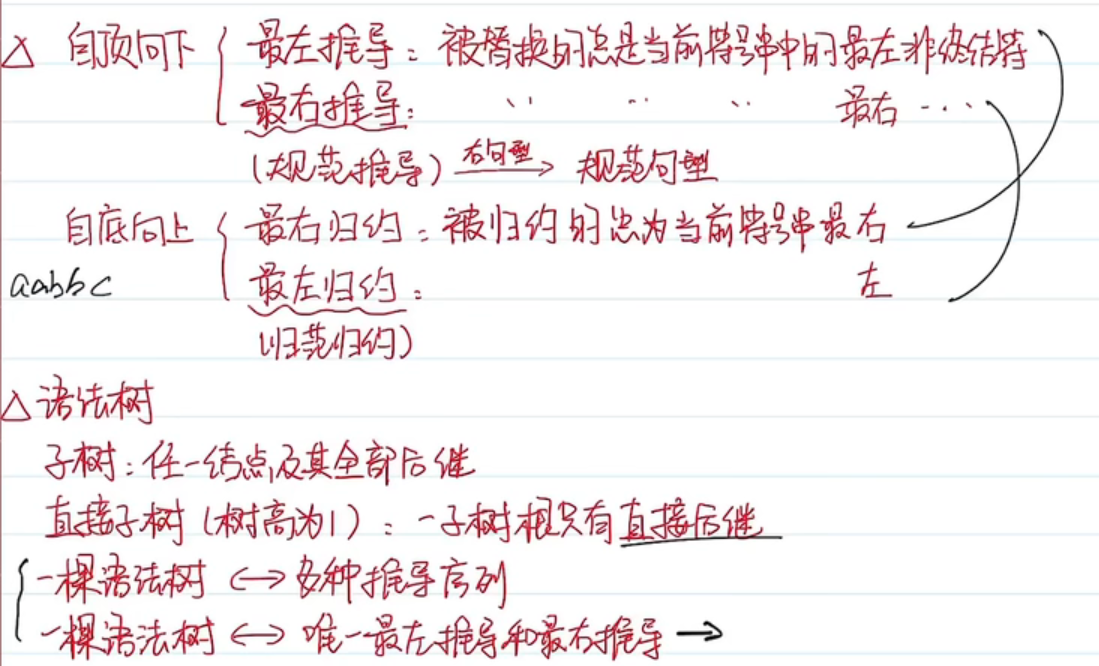 △ 自顶向下 { 最左推导：被替换的总是当前符号串中的最左非终结符
最右推导： 〃 〃 〃 最右 ‥‥
(规范推导) 右句型→ 规范句型
自底向上 { 最右归约：被归约的总为当前符号串最右
aabbc 最左归约： 左
(归范归约)
△ 语法树
子树：任一结点及其全部后继
直接子树（树高为1）：一子树根只有直接后继
一棵语法树 <-> 多种推导序列
一棵语法树 <-> 唯一最左推导和最右推导 →